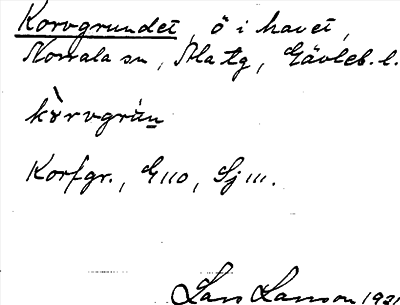 Korvgrundet, ö i havet,
Norrala sn, Ala tg, Gävleb. l.
kòrvgrùn
Korfgr., G 110, Sj 111.
Lars Larsson 1931